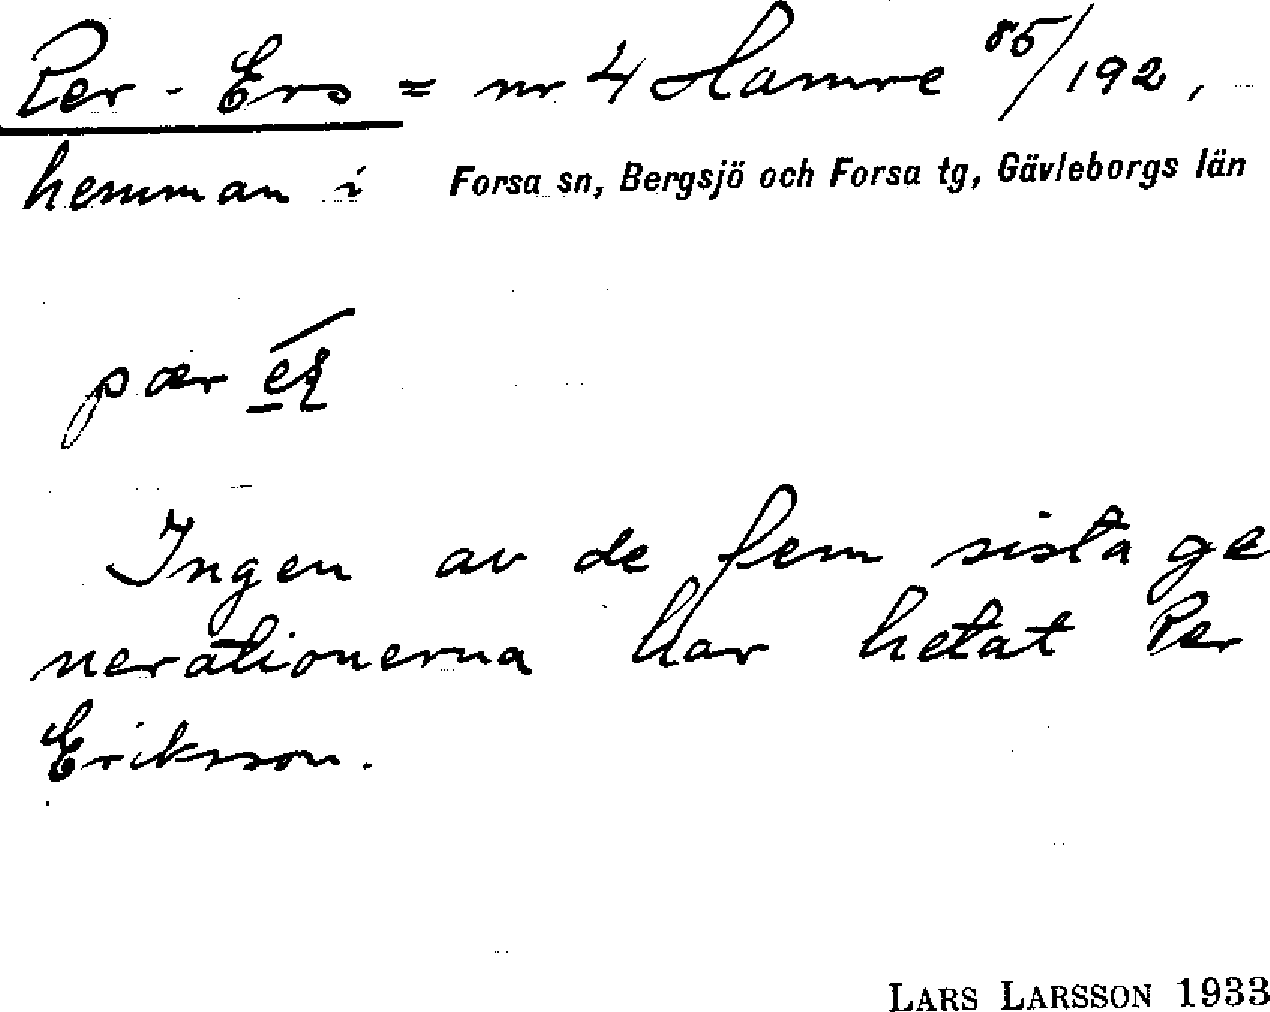 Per-Ers = nr 4 Hamre 85/192,
hemman i Forsa sn, Bergsjö och Forsa tg, Gävleborgs län
pær
Ingen av de fem sista ge
nerationerna har hetat Per
Eriksson.
LARS LARSSON 1933